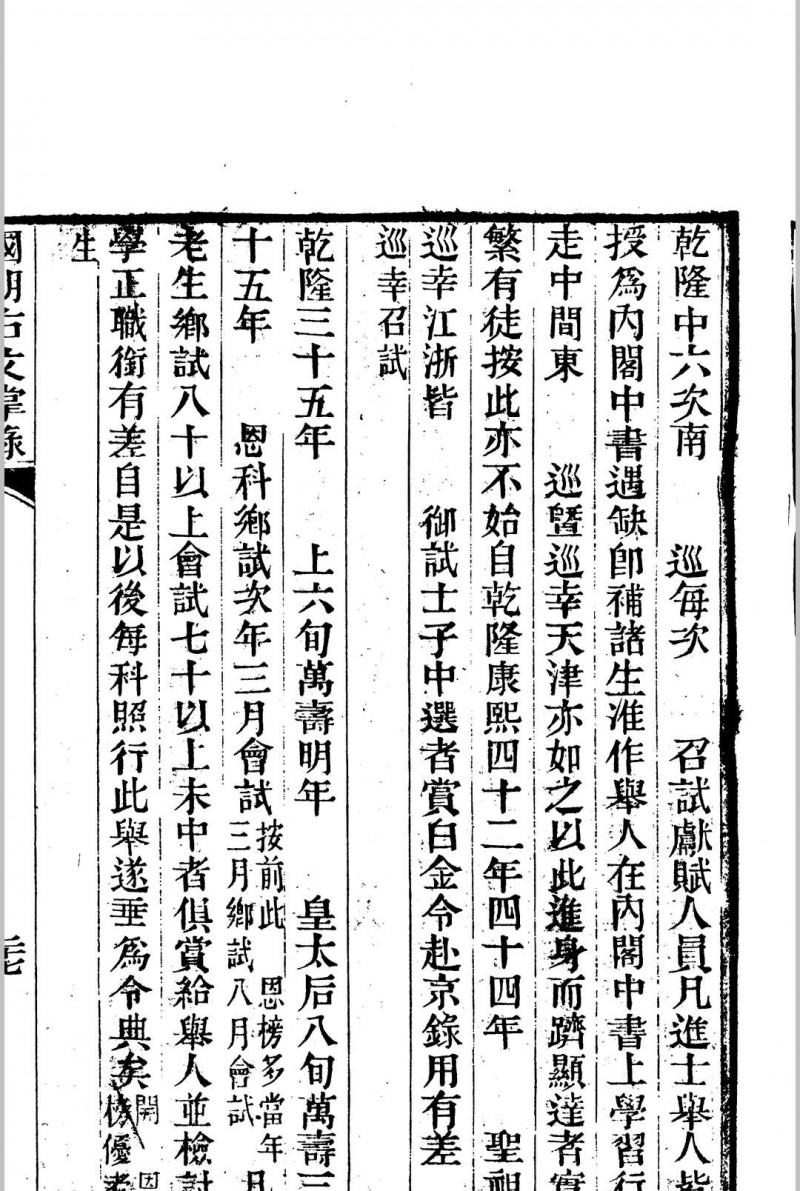 乾隆中六次南　巡每次　召試獻賦人員凡進士舉人皆
授爲內閣中書遇缺卽補諸生准作舉人在內閣中書上學習行
走中間東　巡暨巡幸天津亦如之以此進身而躋顯達者實
繁有徒按此亦不始自乾隆康熙四十二年四十四年　聖祖
巡幸江浙皆　御試士子中選者賞白金令赴京錄用有差
巡幸召試
乾隆三十五年　上六旬萬壽明年　皇太后八旬萬壽三
十五年　恩科鄉試次年三月會試按前此　恩榜多當年三月鄉試八月會試凡
老生鄉試八十以上會試七十以上未中者俱賞給舉人並檢討
學正職銜有差自是以後每科照行此舉遂垂爲令典矣
生
國朝右文掌錄